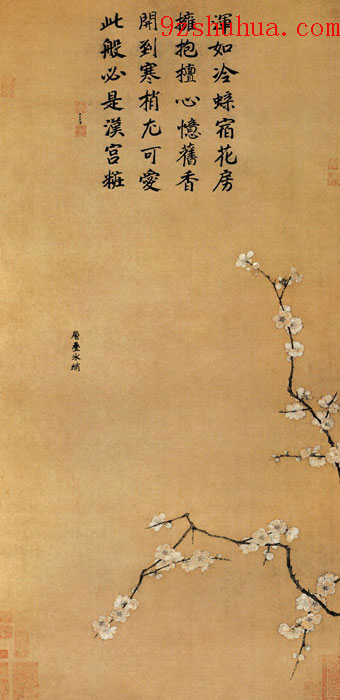 9zshuhua.com
渾如冷蝶宿花房
擁抱檀心憶舊香
開到寒梢尤可愛
此般必是漢宮粧
層疊冰綃